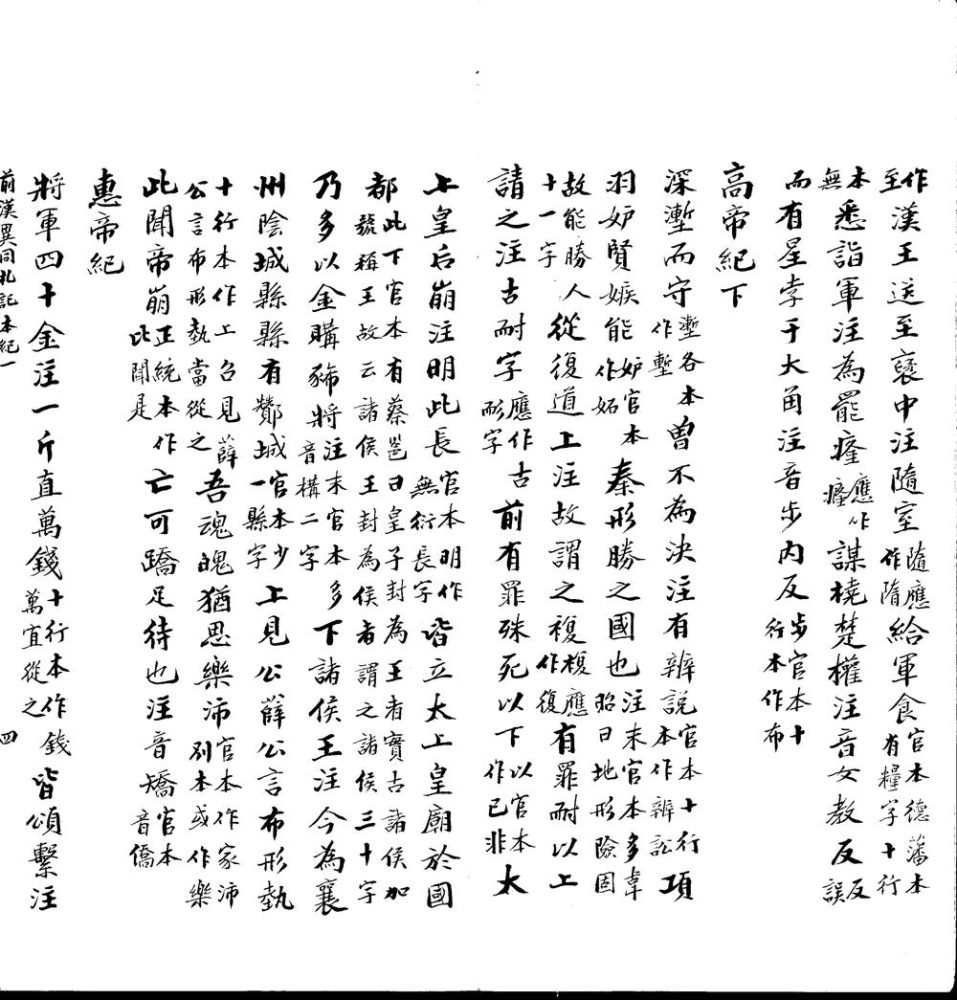 作至漢王送至襃中注隨室隨應作隋給軍食官本德藩本有糧字十行
本無悉詣軍注為罷癃應作癃謀橈楚權注音女教反反誤
而有星孛于大角注音步內反步官本十行本作布
高帝紀下
深塹而守塹各本作壍曾不為決注有辨説官本十行本作辨訟項
羽妒賢嫉能妒官本作妬秦形勝之國也注末官本多韋昭曰地形險固
故能勝人十一字從復道上注故謂之複複應作復有罪耐以上
請之注古耐字應作古耏字前有罪殊死以下以官本作已非太
上皇后崩注明此長官本明作無衍長字皆立太上皇廟於國
都此下官本有蔡邕曰皇子封為王者實古諸侯加號稱王故云諸侯王封為侯者謂之諸侯三十字
乃多以金購豨將注末官本多音搆二字下諸侯王注今為襄
州陰城縣縣有酇城官本少一縣字上見公薛公言布形埶
十行本作上召見薛公言布形埶當從之吾魂魄猶思樂沛官本作家沛別本或作樂
此聞帝崩正統本作此聞是亡可蹻足待也注音矯官本音僑
惠帝紀
將軍四十金注一斤直萬錢十行本作錢萬宜從之皆頌繫注
前漢異同札記本紀一 四